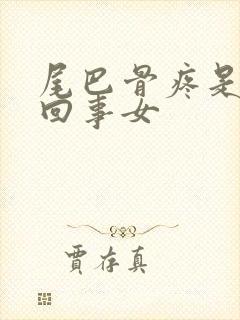 尾巴骨疼是
回事女
贾存真